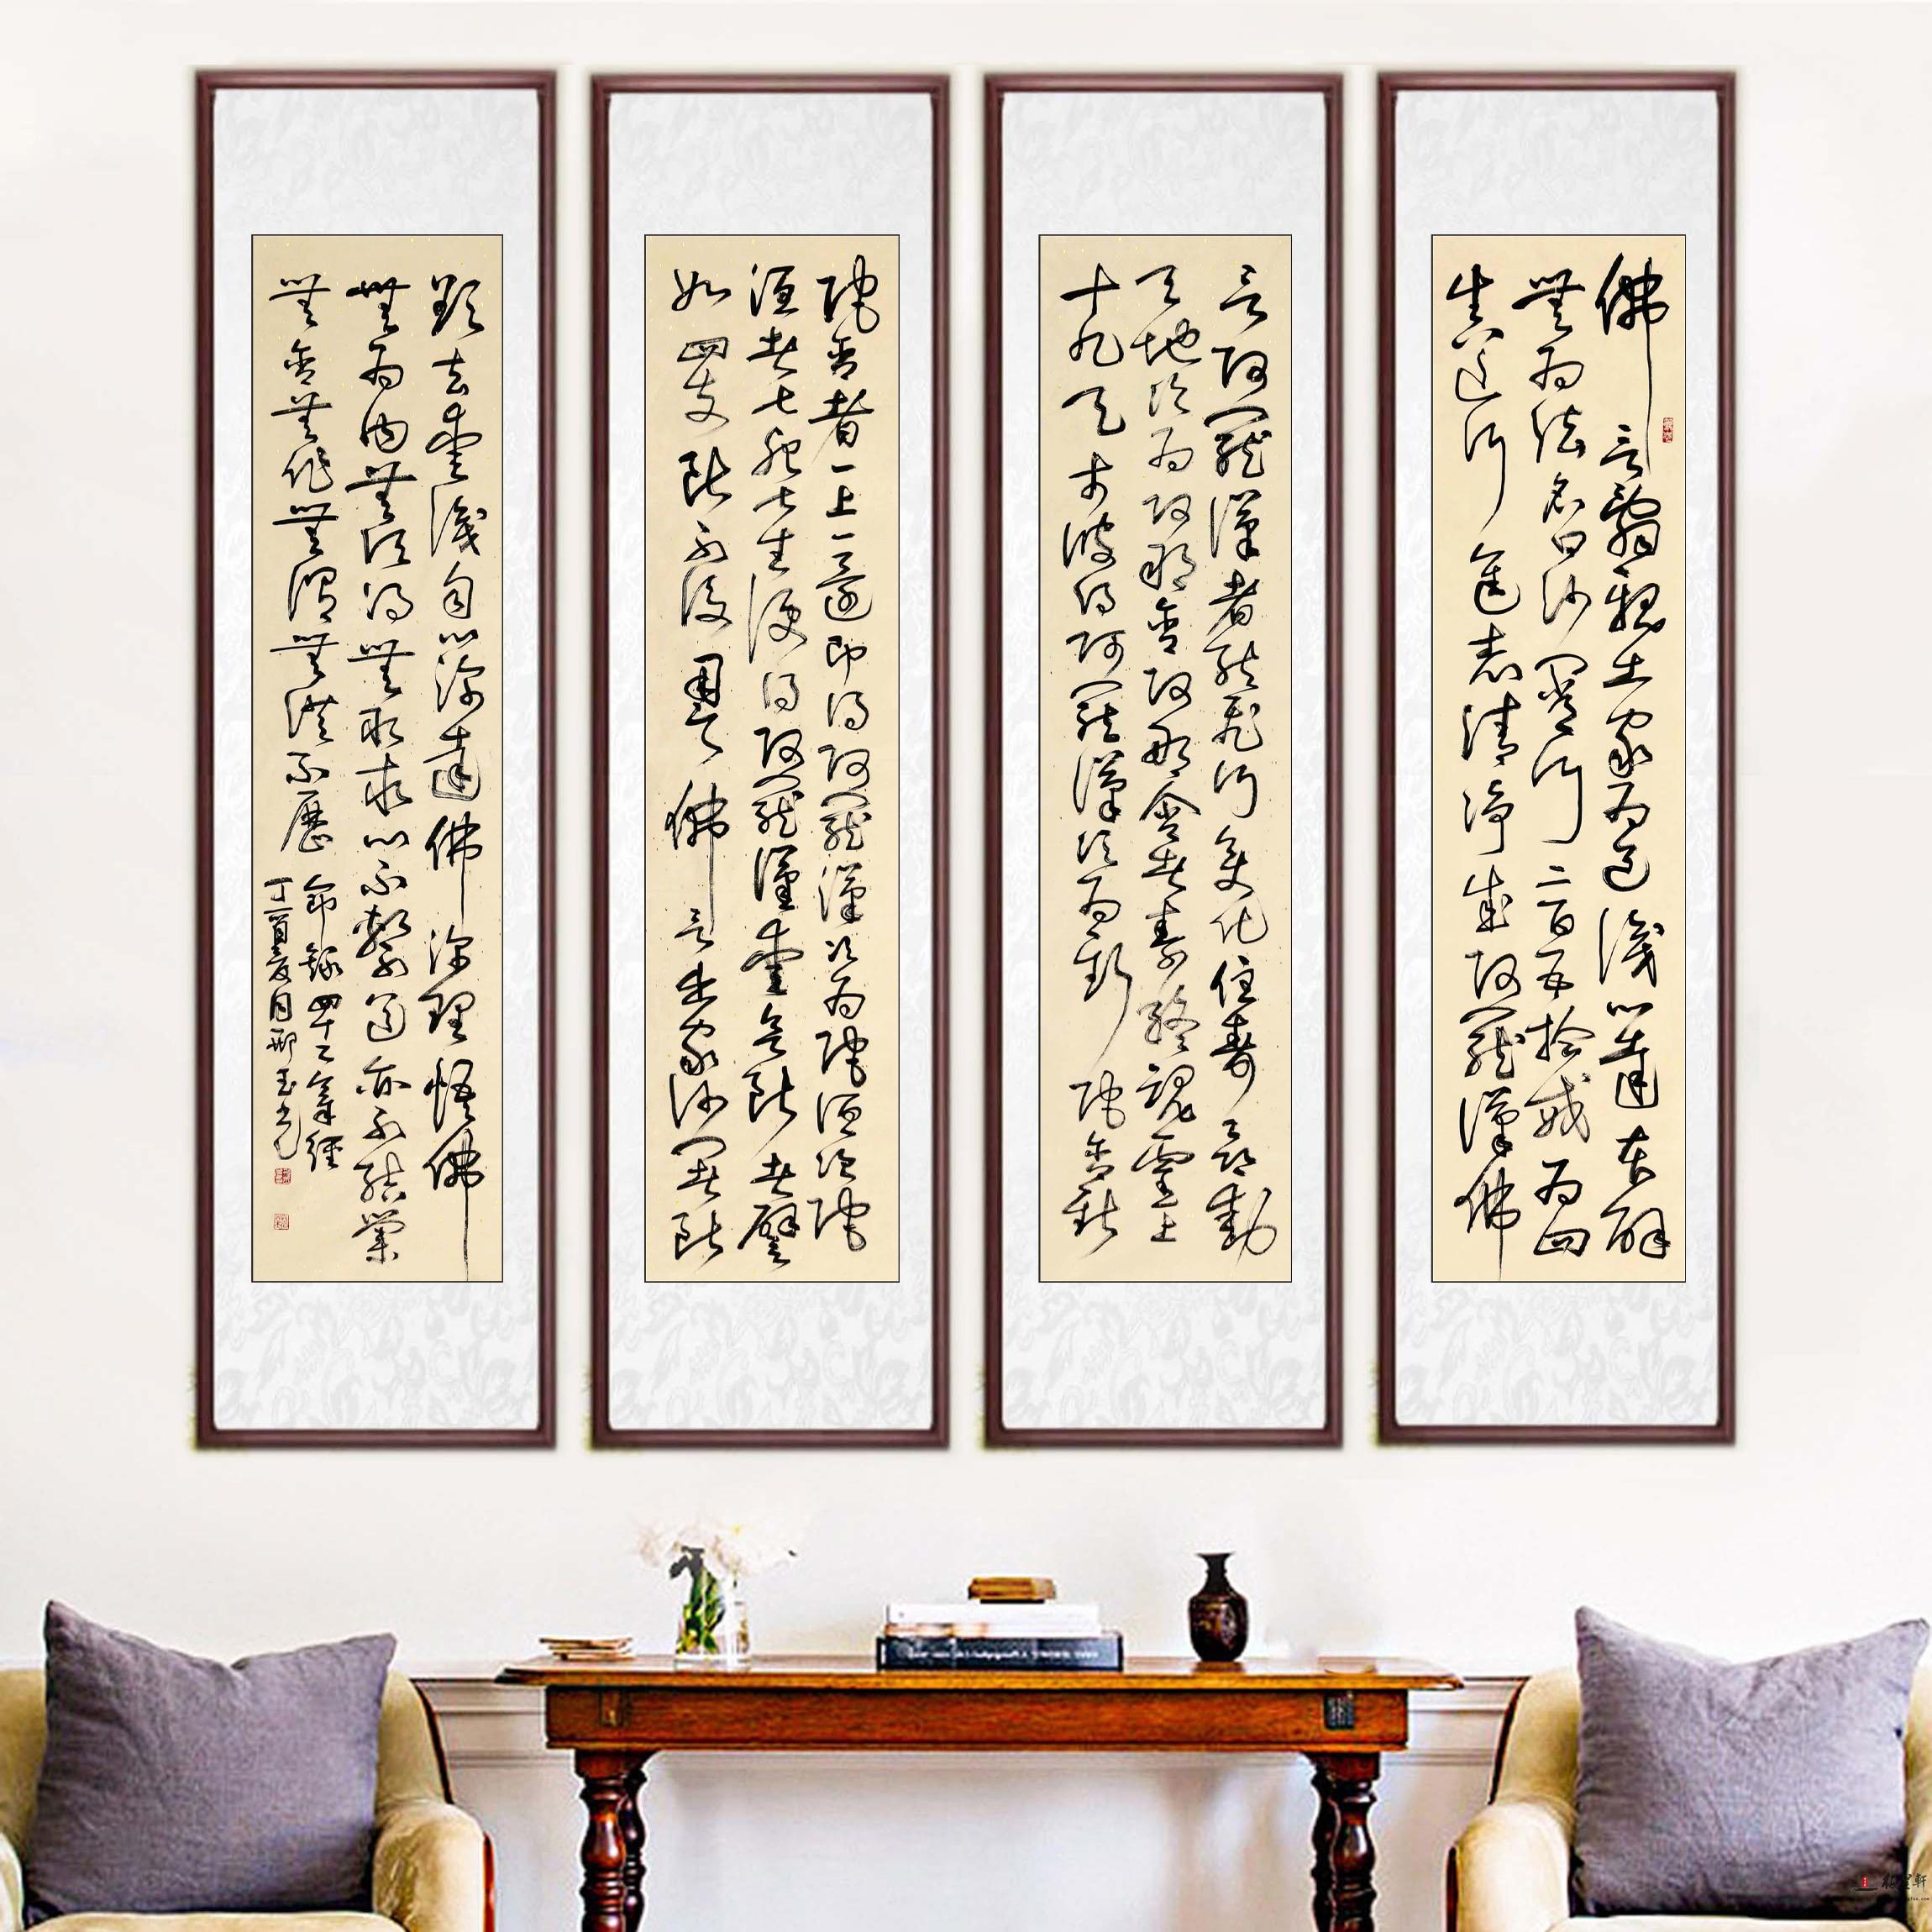 佛言辭親出家為道識心達本解
無為法名曰沙門常行二百五拾戒為四
真道行進志清淨成阿羅漢佛
言阿羅漢者能飛行變化住壽命動
天地次為阿那含阿那含者壽終魂靈上
十九天於彼得阿羅漢次為斯陀含斯
陀含者一上一還即得阿羅漢次為陀洹須陀
洹者七死七生便得阿羅漢愛欲斷者譬
如四支斷不復用之佛言出家沙門者斷
欲去愛識自心源達佛深理悟佛
無為內無所得無所求心不繫道亦不結業
無念無作無修無證不歷
節錄四十二章經
丁酉夏月邢玉光